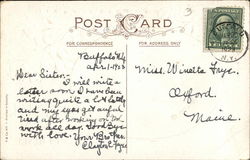 3
POST CARD
FOR CORRESPONDENCE
FOR ADDRESS ONLY
Buffalo N.Y.
Dear Sister:-
I will write a
letter soon. I have been
writing quite a lot lately
and my eyes get awful
tired after working on the
work all day. Good Bye
with love. Your Brother
Miss. Winetta Frye.
Oxford.
Maine.
N.Y.